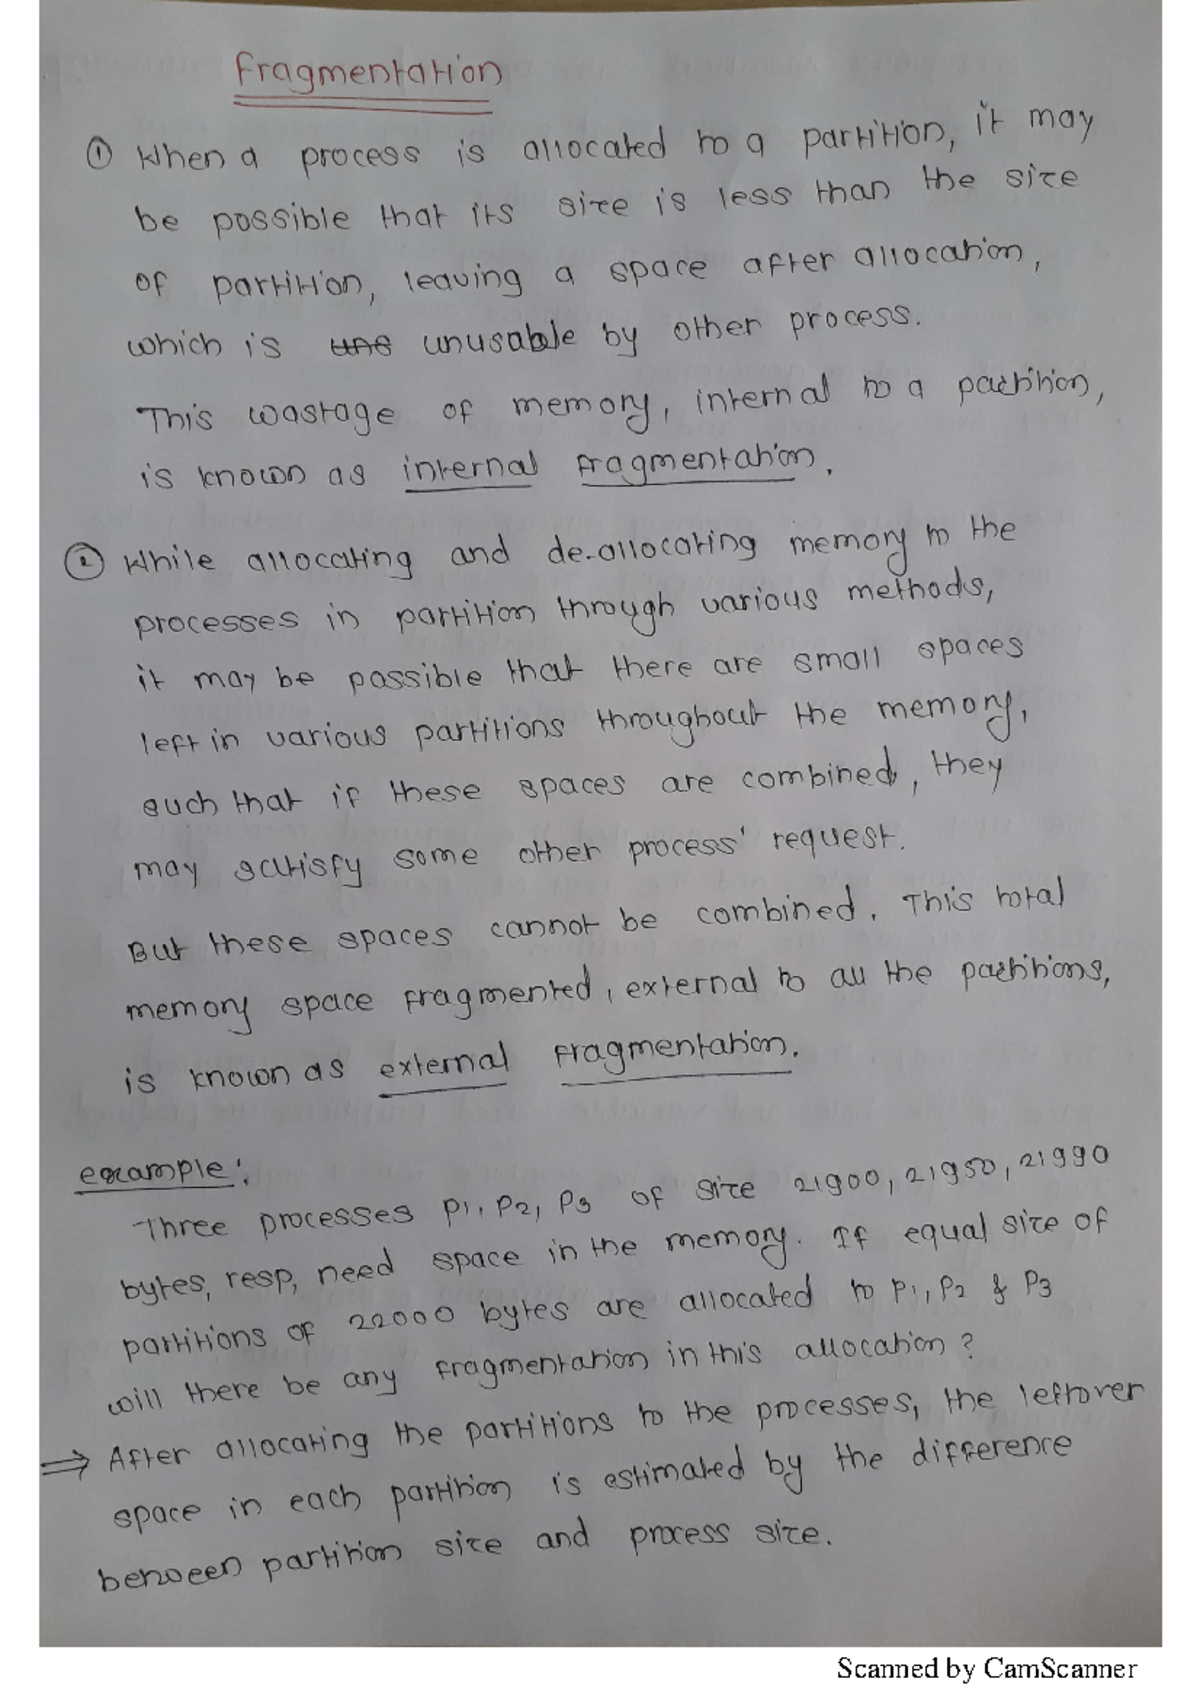 Fragmentation
① When a process is allocated to a partition, it may
be possible that its size is less than the size
of partition, leaving a space after allocation,
which is unusable by other process.
This wastage of memory, internal to a partition,
is known as internal fragmentation.
② While allocating and de-allocating memory to the
processes in partition through various methods,
it may be possible that there are small spaces
left in various partitions throughout the memory,
such that if these spaces are combined, they
may satisfy some other process' request.
But these spaces cannot be combined. This total
memory space fragmented, external to all the partitions,
is known as external fragmentation.
example:
Three processes P1, P2, P3 of size 21900, 21950, 21990
bytes, resp, need space in the memory. If equal size of
partitions of 22000 bytes are allocated to P1, P2 & P3
will there be any fragmentation in this allocation?
⇒ After allocating the partitions to the processes, the leftover
space in each partition is estimated by the difference
between partition size and process size.
Scanned by CamScanner